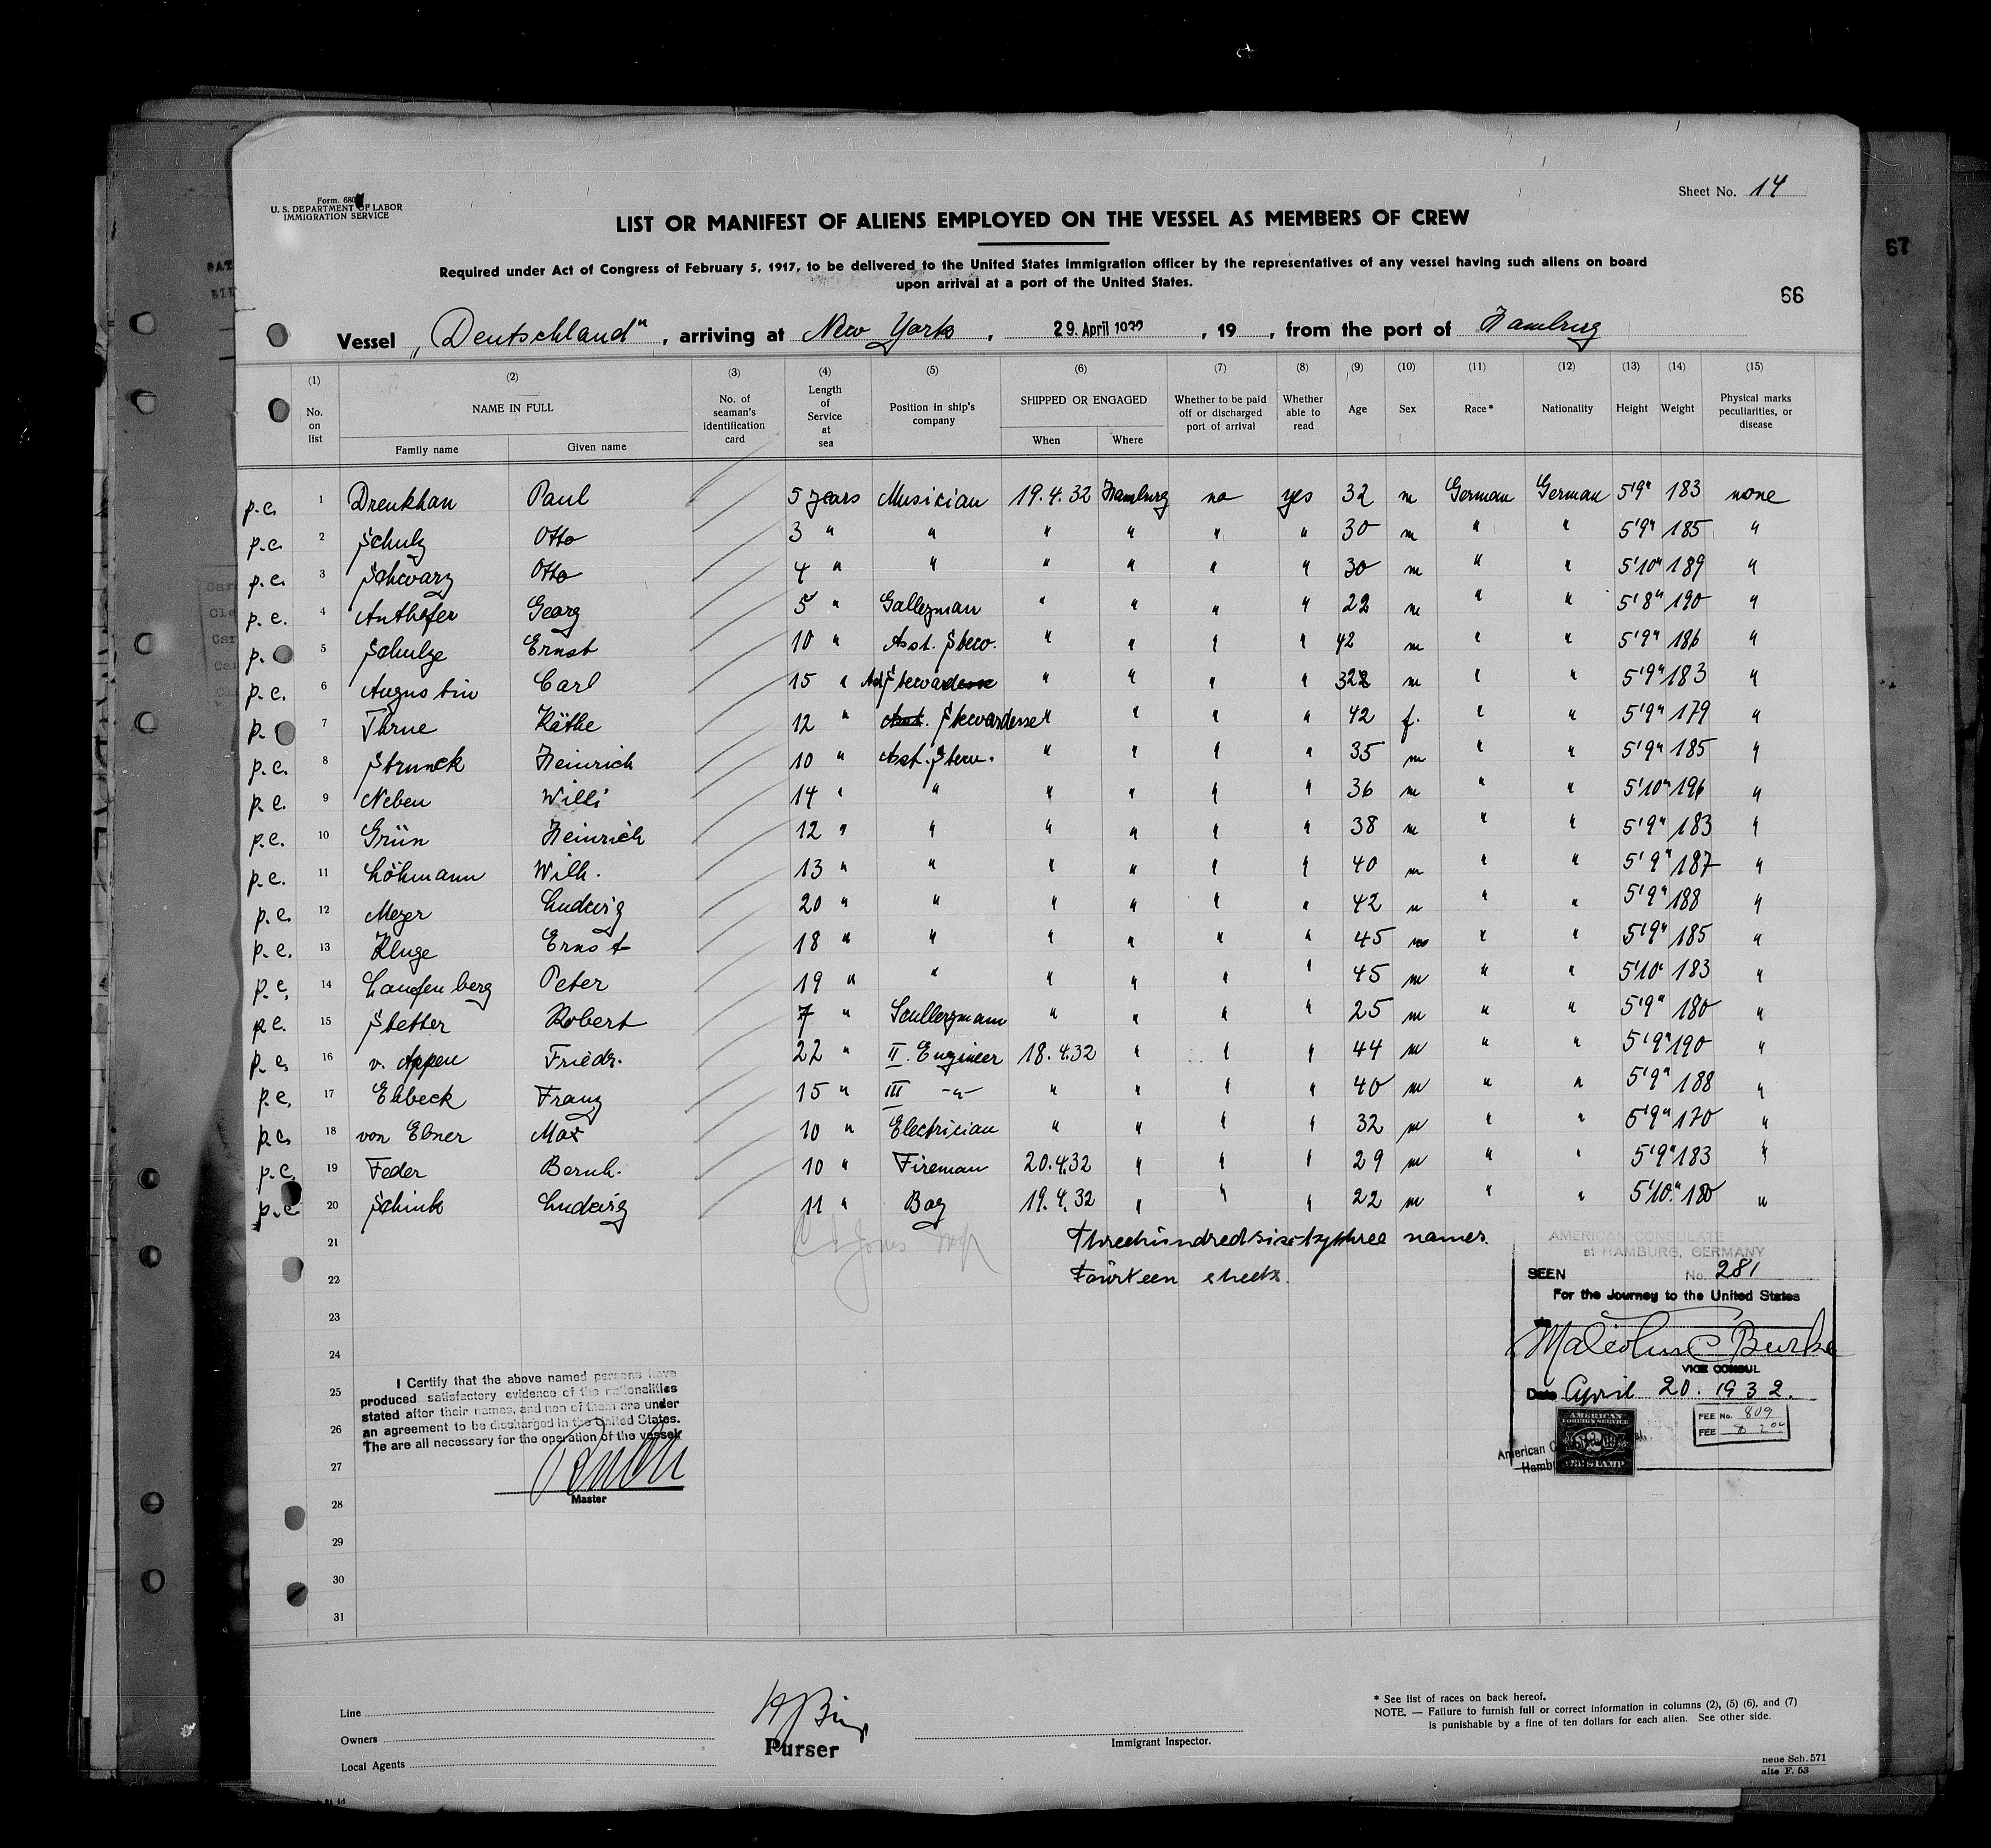 Form. 680
U. S. DEPARTMENT OF LABOR
IMMIGRATION SERVICE
Sheet No. 14
LIST OR MANIFEST OF ALIENS EMPLOYED ON THE VESSEL AS MEMBERS OF CREW
Required under Act of Congress of February 5, 1917, to be delivered to the United States immigration officer by the representatives of any vessel having such aliens on board
upon arrival at a port of the United States.
67
66
Vessel „Deutschland", arriving at New York, 29. April 1932, 19 , from the port of Hamburg
(1) No. on list
(2) NAME IN FULL Family name Given name
(3) No. of seaman's identification card
(4) Length of Service at sea
(5) Position in ship's company
(6) SHIPPED OR ENGAGED When Where
(7) Whether to be paid off or discharged port of arrival
(8) Whether able to read
(9) Age
(10) Sex
(11) Race*
(12) Nationality
(13) Height
(14) Weight
(15) Physical marks peculiarities, or disease
p.c. 1 Drenkhan Paul 5 years Musician 19.4.32 Hamburg no yes 32 m German German 5'9" 183 none
p.c. 2 Schulz Otto 3 " " " " " " 30 m " " 5'9" 185 "
p.c. 3 Schwarz Otto 4 " " " " " " 30 m " " 5'10" 189 "
p.c. 4 Anthofer Georg 5 " Galleyman " " " " 22 m " " 5'8" 190 "
p. 5 Schulze Ernst 10 " Asst. Stew. " " " " 42 m " " 5'9" 186 "
p.c. 6 Augustin Carl 15 " Stewardesse " " " " m " " 5'9" 183 "
p. 7 Thrue Käthe 12 " Asst. Stewardesse " " " " 42 f. " " 5'9" 179 "
p.c. 8 Strunck Heinrich 10 " Asst. Stew. " " " " 35 m " " 5'9" 185 "
p.c. 9 Neben Willi 14 " " " " " " 36 m " " 5'10" 196 "
p.c. 10 Grün Heinrich 12 " " " " " " 38 m " " 5'9" 183 "
p.c. 11 Löhmann Wilh. 13 " " " " " " 40 m " " 5'9" 187 "
p.c. 12 Meyer Ludwig 20 " " " " " " 42 m " " 5'9" 188 "
p.c. 13 Kluge Ernst 18 " " " " " " 45 m " " 5'9" 185 "
p.c. 14 Laufenberg Peter 19 " " " " " " 45 m " " 5'10" 183 "
p.c. 15 Stetter Robert 7 " Scullerymann " " " " 25 m " " 5'9" 180 "
p.c. 16 v. Appen Friedr. 22 " II. Engineer 18.4.32 " " " 44 m " " 5'9" 190 "
p.c. 17 Ehbeck Franz 15 " III -"- " " " " 40 m " " 5'9" 188 "
p.c. 18 von Ebner Max 10 " Electrician " " " " 32 m " " 5'9" 170 "
p.c. 19 Feder Bernh. 10 " Fireman 20.4.32 " " " 29 m " " 5'9" 183 "
p.c. 20 Schink Ludwig 11 " Boy 19.4.32 " " " 22 m " " 5'10" 180 "
21 Threehundredsixtythree names.
22 Fourteen sheets.
23
24
25
26
27
28
29
30
31
AMERICAN CONSULATE
at HAMBURG, GERMANY
SEEN No. 281
For the Journey to the United States
Malcolm C Burke
VICE CONSUL
Date April 20. 1932.
FEE No. 809
FEE $ 2.00
AMERICAN
FOREIGN SERVICE
FEE STAMP
I Certify that the above named persons have
produced satisfactory evidence of the nationalities
stated after their names, and non of them are under
an agreement to be discharged in the United States.
The are all necessary for the operation of the vessel.
Master
Line
Owners
Local Agents
Purser
Immigrant Inspector.
* See list of races on back hereof.
NOTE. — Failure to furnish full or correct information in columns (2), (5) (6), and (7)
is punishable by a fine of ten dollars for each alien. See other side.
neue Sch. 571
alte F. 53